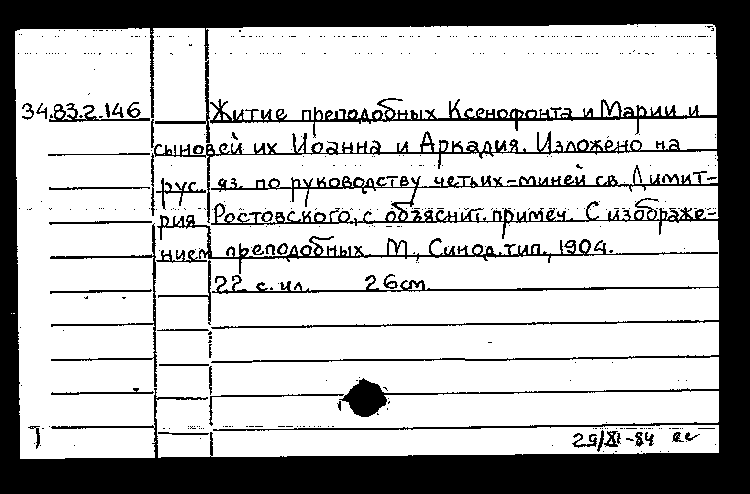 34.83.2.146 Житие преподобных Ксенофонта и Марии и
сыновей их Иоанна и Аркадия. Изложено на
рус. яз. по руководству четьих-миней св. Димит-
рия Ростовского, с объяснит. примеч. С изображе-
нием преподобных. М., Синод. тип., 1904.
22 с. ил. 26см.
29/XI-84